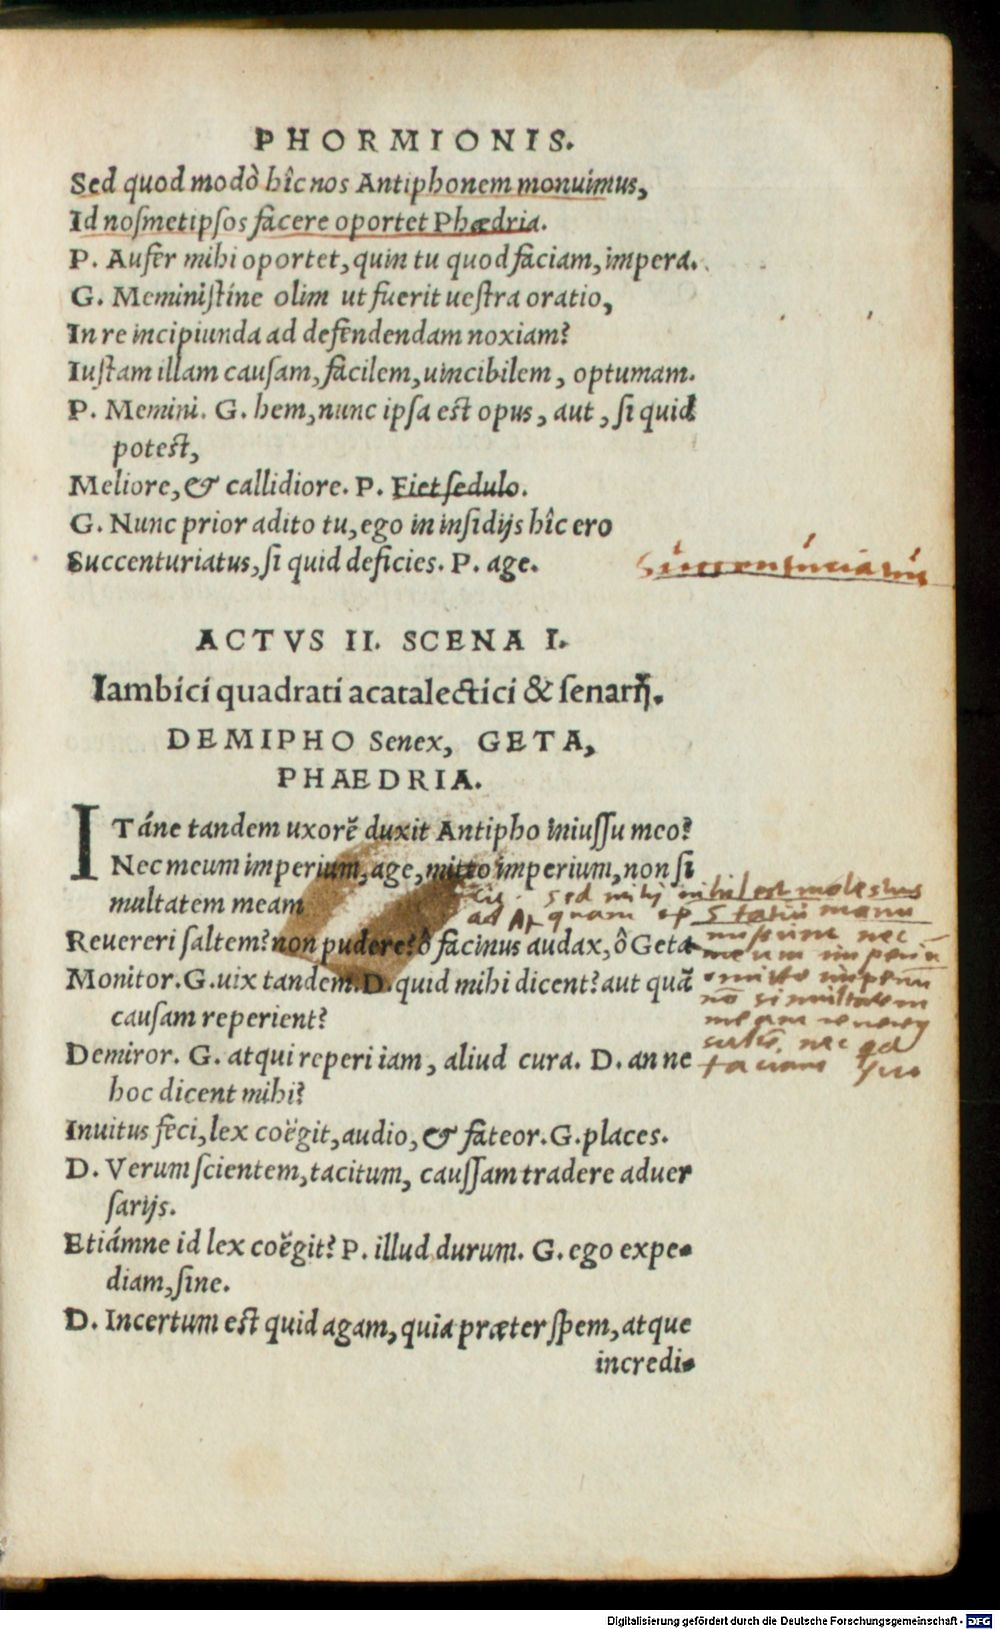 PHORMIONIS.
Sed quod modò hîc nos Antiphonem monuimus,
Id nosmetipsos facere oportet Phædria.
P. Aufer mihi oportet, quin tu quod faciam, impera.
G. Meministíne olim ut fuerit uestra oratio,
In re incipiunda ad defendendam noxiam?
Iustam illam causam, facilem, uincibilem, optumam.
P. Memini. G. hem, nunc ipsa est opus, aut, si quid
potest,
Meliore, & callidiore. P. Fiet sedulo.
G. Nunc prior adito tu, ego in insidijs hîc ero
Succenturiatus, si quid deficies. P. age.
Succenturiatus
ACTVS II. SCENA I.
Iambici quadrati acatalectici & senarij.
DEMIPHO Senex, GETA,
PHAEDRIA.
ITáne tandem uxorē duxit Antipho iniussu meo?
Nec meum imperium, age, mitto imperium, non si
multatem meam
sed mihi nihil est molestius
ad quam
Reuereri saltem? non pudere? ô facinus audax, ô Geta
nec
meum imperiū
omitto imperiū
nō simultatem
meam
nec
Monitor. G. uix tandem. D. quid mihi dicent? aut quā
causam reperient?
Demiror. G. atqui reperi iam, aliud cura. D. an ne
hoc dicent mihi?
Inuitus feci, lex coëgit, audio, & fateor. G. places.
D. Verum scientem, tacitum, caussam tradere aduer
sarijs.
Etiámne id lex coëgit? P. illud durum. G. ego expe-
diam, sine.
D. Incertum est quid agam, quia præter spem, atque
incredi-
Digitalisierung gefördert durch die Deutsche Forschungsgemeinschaft - DFG